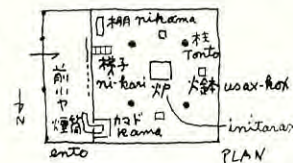 棚 nikama
柱
Tonto
梯子
ni-kari
炉
火鉢 usax-kox
前小ヤ
煙筒
カマド
kama
initarax
N
ento
PLAN